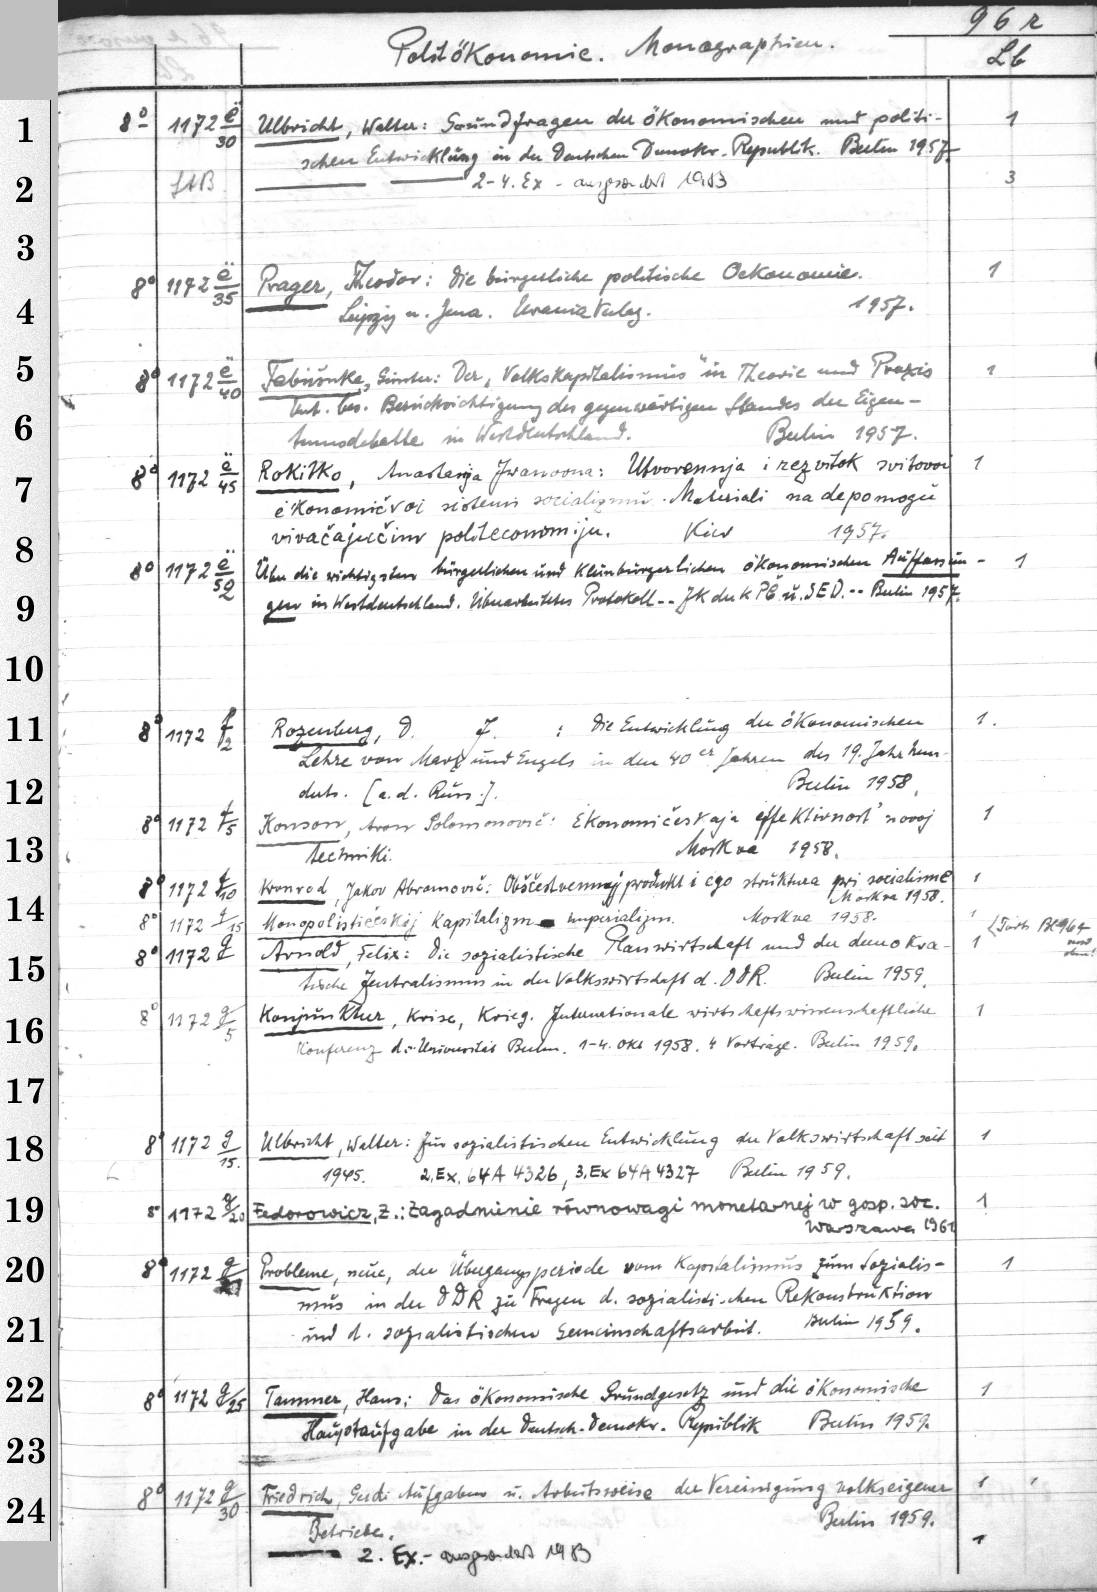 96 r
Politökonomie. Monographien.
Lb
1 8° 1172 ë/30 Ulbricht, Walter: Grundfragen der ökonomischen und politi- 1
schen Entwicklung in der Deutschen Demokr. Republik. Berlin 1957.
2 2-4. Ex - ausgesondert 1983 3
3
8° 1172 ë/35 Prager, Theodor: Die bürgerliche politische Oekonomie. 1
4 Leipzig u. Jena. Urania Verlag. 1957.
5 8° 1172 ë/40 Fabiunke, Günter: Der „Volkskapitalismus" in Theorie und Praxis 1
Unt. bes. Berücksichtigung des gegenwärtigen Standes der Eigen-
6 tumsdebatte in Westdeutschland. Berlin 1957.
8° 1172 ë/45 Rokitko, Anastasija Iwanovna: Utvorennja i rozvitok svitovoi 1
7 ekonomičnoi sistemi socializmu. Materiali na depomogu
vivačajučim politeconomiju. Kiev 1957.
8 8° 1172 ë/50 Über die wichtigsten bürgerlichen und kleinbürgerlichen ökonomischen Auffassun- 1
9 gen in Westdeutschland. Überarbeitetes Protokoll -- ZK der KPČ u. SED. -- Berlin 1957.
10
11 8° 1172 f/2 Rozenberg, D. I. : Die Entwicklung der ökonomischen 1.
Lehre von Marx und Engels in den 40er Jahren des 19. Jahrhun-
12 derts. [a. d. Russ.]. Berlin 1958.
8° 1172 f/5 Konson, Aron Solomonovič: Ekonomičeskaja effektivnost' novoj 1
13 techniki. Moskva 1958.
8° 1172 f/10 Kronrod, Jakov Abramovič: Obščestvennyj produkt i ego struktura pri socialisme 1
Moskva 1958.
14 8° 1172 f/15 Monopolističeskij kapitalizm - imperializm. Moskva 1958. 1
8° 1172 g Arnold, Felix: Die sozialistische Planwirtschaft und der demokra- 1
15 tische Zentralismus in der Volkswirtschaft d. DDR. Berlin 1959.
16 8° 1172 g/5 Konjunktur, Krise, Krieg. Internationale wirtschaftswissenschaftliche 1
Konferenz d. Universität Berlin. 1-4. Okt 1958. 4 Vorträge. Berlin 1959.
17
18 8° 1172 g/15. Ulbricht, Walter: Zur sozialistischen Entwicklung der Volkswirtschaft seit 1
1945. 2. Ex. 64 A 4326, 3. Ex 64 A 4327 Berlin 1959.
19 8° 1172 g/20 Fedorowicz, Z.: Zagadnienie równowagi monetarnej w gosp. soc. 1
Warszawa
20 8° 1172 g Probleme, neue, der Übergangsperiode vom Kapitalismus zum Sozialis- 1
mus in der DDR zu Fragen d. sozialistischen Rekonstruktion
21 und d. sozialistischen Gemeinschaftsarbeit. Berlin 1959.
22 8° 1172 g/25 Tammer, Hans: Das ökonomische Grundgesetz und die ökonomische 1
Hauptaufgabe in der Deutsch. Demokr. Republik Berlin 1959.
23
24 8° 1172 g/30 Friedrich, Gerd: Aufgaben u. Arbeitsweise der Vereinigung volkseigener 1
Betriebe. Berlin 1959.
2. Ex. - ausgesondert 1983 1